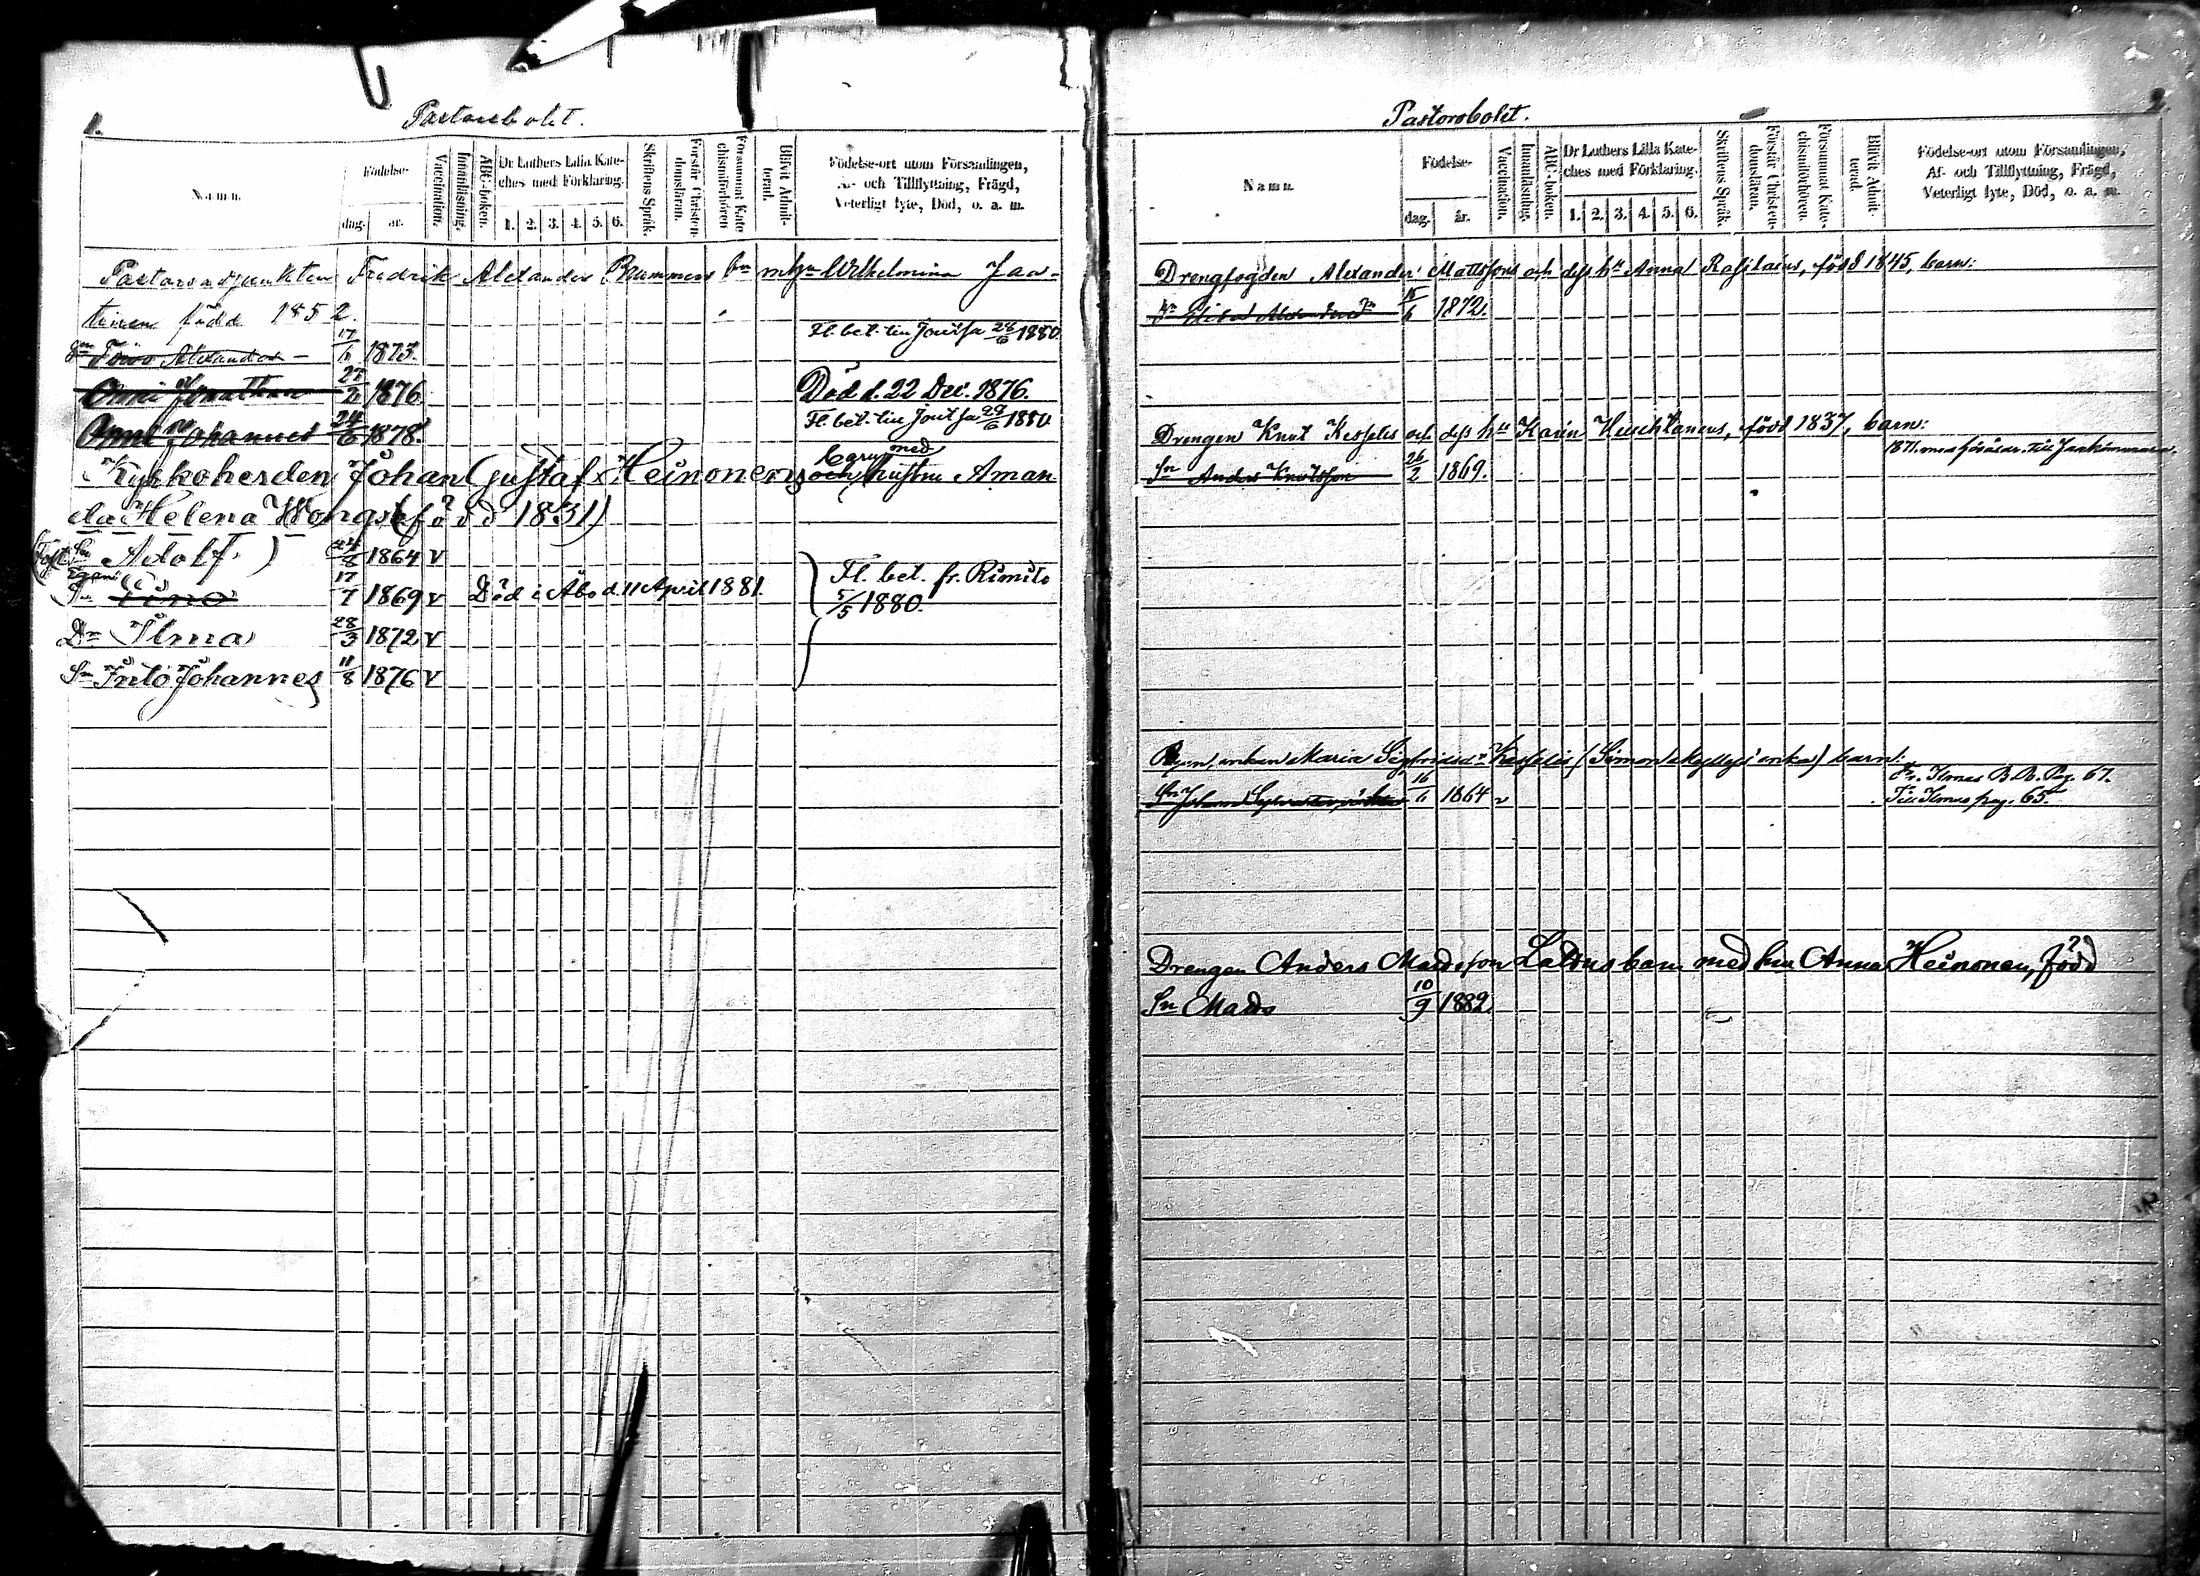 1.
Pastorsbolet.
Namn.
Födelse-
dag. år.
Vaccination.
Innanläsning.
ABC-boken.
Dr Luthers Lilla Kate-
ches med Förklaring.
1. 2. 3. 4. 5. 6.
Skriftens Språk.
Förstår Christen-
domsläran.
Försummat Kate-
chismiförhören
Blifvit Admit-
terad.
Födelse-ort utom Församlingen,
Af- och Tillflyttning, Frägd,
Veterligt lyte, Död, o. a. m.
Pastorsadjunkten Fredrik Alexander Brummers bn m hu Wilhelmina Jaa-
tinen född 1852.
Sn Toivo Alexander 17/6 1873. Fl. bet. till Joutsa 28/6 1880.
Onni Jonathan 27/2 1876. Död d. 22 Dec. 1876.
Onni Johannes 24/6 1878. Fl. bet. till Joutsa 28/6 1880
Kyrkoherden Johan Gustaf Heinonens och barn med hustru Aman-
da Helena Wongst (född 1831)
Sn Adolf 24/8 1864 v
Sn Eino 17/7 1869 v Död i Åbo d 11 April 1881.
Fl. bet. fr. Rimito
5/5 1880.
Dr Ilma 28/3 1872 v
Sn Into Johannes 11/8 1876 v
2.
Pastorsbolet.
Namn.
Födelse-
dag. år.
Vaccination.
Innanläsning.
ABC-boken.
Dr Luthers Lilla Kate-
ches med Förklaring.
1. 2. 3. 4. 5. 6.
Skriftens Språk.
Förstår Christen-
domsläran.
Försummat Kate-
chismiförhören.
Blifvit Admit-
terad.
Födelse-ort utom Församlingen,
Af- och Tillflyttning, Frägd,
Veterligt lyte, Död, o. a. m.
Drengfogden Alexander Mattssons och dess hu Anna Rasilainus, född 1845, barn:
15/6 1872.
Drengen Knut Kesselis och dess hu Karin Huuhtanens, född 1837, barn:
1871. med föräldr. till Jaakimvaara.
Sn Anders Knutsson 26/2 1869.
enkan Maria Sigfridsdr Kesselis (Simon enka) barn:
Fr. Ilmes B.B. Pag. 67.
Sn Johan Sylvester 16/6 1864 v Till Ilmes pag. 65.
Drengen Anders Madsson Lattus barn med hu Anna Heinonen, född
Sn Mads 10/9 1882.